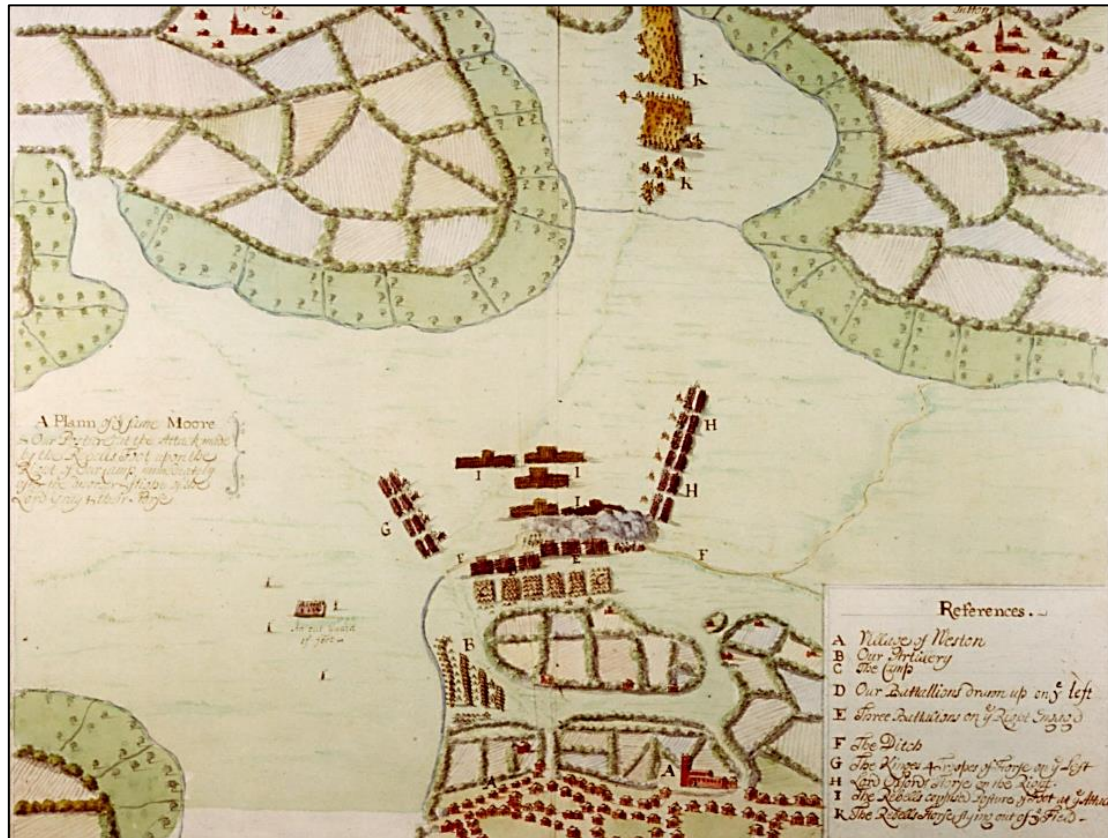 Sutton
K
K
A Plann of ye same Moore
Our Posture at the Attack made
by the Rebells Foot upon the
Right of Our Camp immediately
after the
Lord Grey & their Horse
H
H
I
I
I
G
F
E
F
D
C
C
An out Guard
of
B
A
A
References.
A Village of Weston
B Our Artillery
C The Camp
D Our Battallions drawn up on ye left
E Three Battalions on ye Right Engag'd
F The Ditch
G The Kinges 4 Troopes of Horse on ye Left
H Lord Oxfords Horse on the Right
I The Rebells confused Posture of Foot at ye Attack
K The Rebells Horse flying out of ye Field